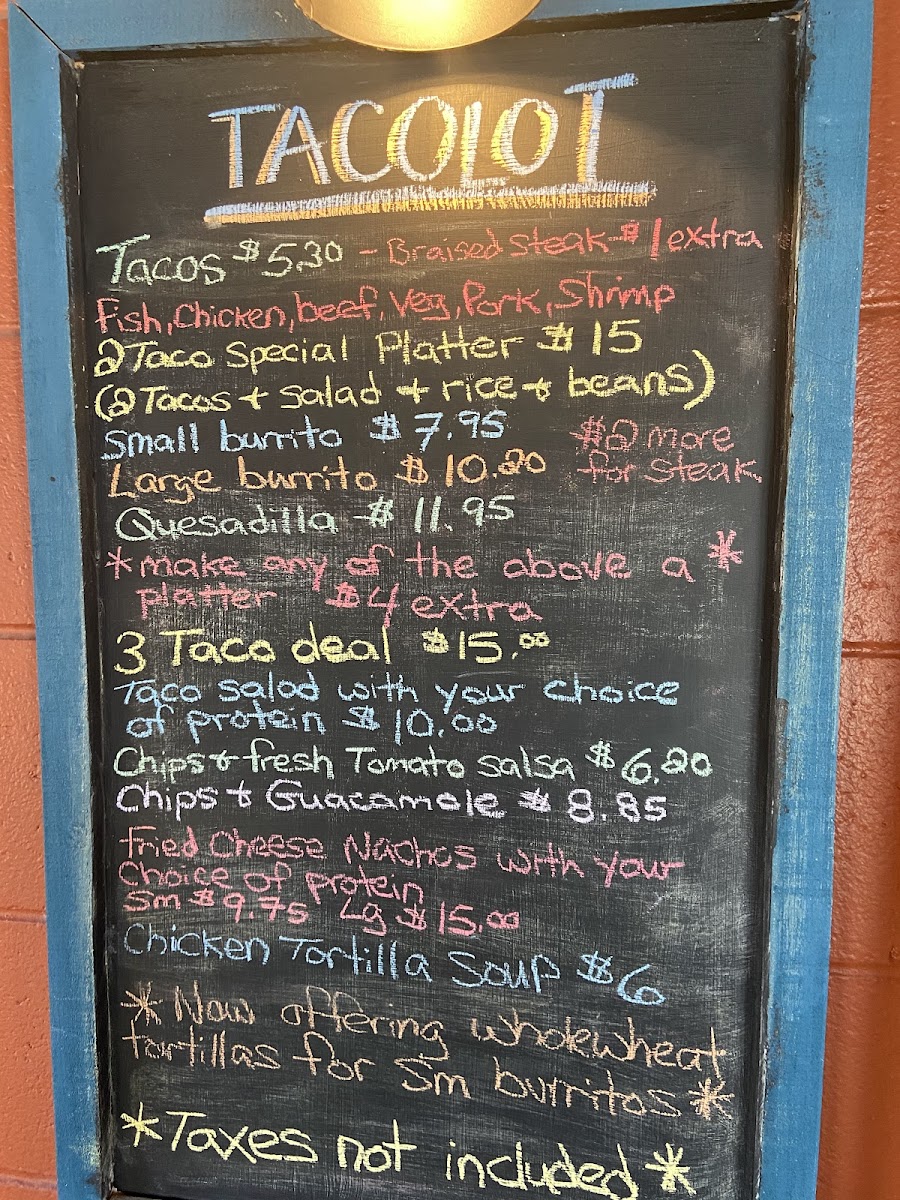 TACOLOT
Tacos $5.20 - Braised steak $1 extra
Fish, Chicken, beef, Veg, Pork, Shrimp
2 Taco Special Platter $15
(2 Tacos + salad + rice + beans)
Small burrito $7.95
$2 more
for steak
Large burrito $10.20
Quesadilla $11.95
*make any of the above a *
platter $4 extra
3 Taco deal $15.00
Taco salad with your choice
of protein $10.00
Chips + fresh Tomato salsa $6.20
Chips + Guacamole $8.85
Fried Cheese Nachos with your
Choice of protein
Sm $9.75 Lg $15.00
Chicken Tortilla Soup $6
* Now offering wholewheat
tortillas for Sm burritos *
*Taxes not included *